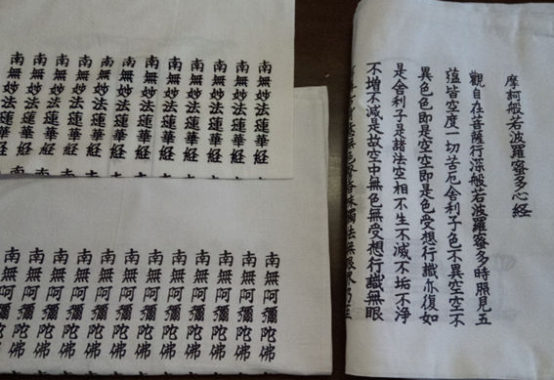 摩柯般若波羅蜜多心経
觀自在菩薩行深般若波羅蜜多時照見五
蘊皆空度一切苦厄舍利子色不異空空不
異色色即是空空即是色受想行識亦復如
是舍利子是諸法空相不生不滅不垢不淨
不増不減是故空中無色無受想行識無眼
無色聲香味觸法無眼
南無妙法蓮華経
南無妙法蓮華経
南無妙法蓮華経
南無妙法蓮華経
南無妙法蓮華経
南無妙法蓮華経
南無妙法蓮華経
南無妙法蓮華経
南無妙法蓮華経
南無妙法蓮華経
南無妙法蓮華経
南無阿彌陀佛
南無阿彌陀佛
南無阿彌陀佛
南無阿彌陀佛
南無阿彌陀佛
南無阿彌陀佛
南無阿彌陀佛
南無阿彌陀佛
南無阿彌陀佛
南無阿彌陀佛
南無阿彌陀佛